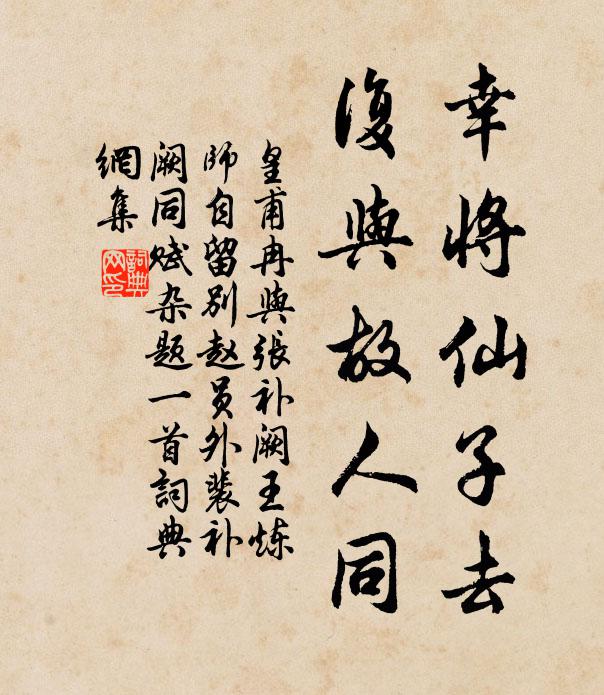 幸将仙子去
復與故人同
皇甫冉與張补阙王炼
师自留别赵员外裴补
阙同赋杂题一首詞典
網集
詞典
网印